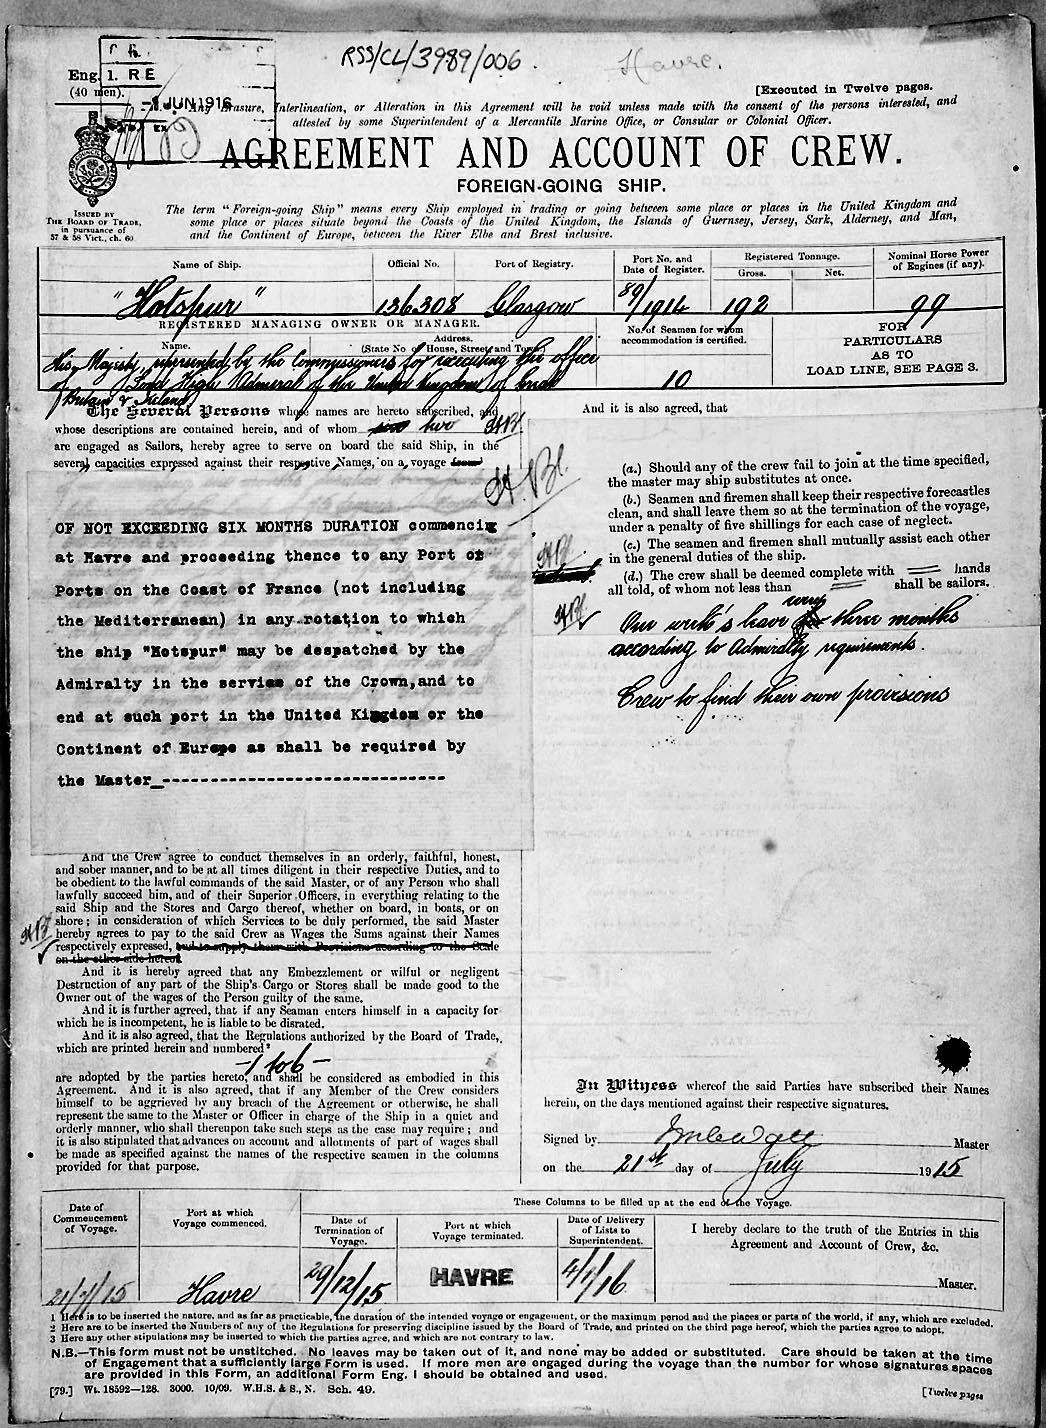 RSS/CL/3989/006.
Havre.
Eng. 1. R E
(40 men).
-1 JUN 1916
[Executed in Twelve pages.
Any Erasure, Interlineation, or Alteration in this Agreement will be void unless made with the consent of the persons interested, and
attested by some Superintendent of a Mercantile Marine Office, or Consular or Colonial Officer.
AGREEMENT AND ACCOUNT OF CREW.
FOREIGN-GOING SHIP.
ISSUED BY
THE BOARD OF TRADE,
in pursuance of
57 & 58 Vict., ch. 60.
The term "Foreign-going Ship" means every Ship employed in trading or going between some place or places in the United Kingdom and
some place or places situate beyond the Coasts of the United Kingdom, the Islands of Guernsey, Jersey, Sark, Alderney, and Man,
and the Continent of Europe, between the River Elbe and Brest inclusive.
Name of Ship.
Official No.
Port of Registry.
Port No. and
Date of Register.
Registered Tonnage.
Gross.
Net.
Nominal Horse Power
of Engines (if any).
"Hotspur"
136308
Glasgow
89/1914
192
99
REGISTERED MANAGING OWNER OR MANAGER.
Name.
Address.
(State No of House, Street and Town)
No. of Seamen for whom
accommodation is certified.
FOR
PARTICULARS
AS TO
LOAD LINE, SEE PAGE 3.
His Majesty, represented by the Commissioners for executing the office
of Lord High Admiral of the United Kingdom of Great
Britain & Ireland
10
The Several Persons whose names are hereto subscribed, and
whose descriptions are contained herein, and of whom two
are engaged as Sailors, hereby agree to serve on board the said Ship, in the
several capacities expressed against their respective Names, on a voyage from
OF NOT EXCEEDING SIX MONTHS DURATION commencing
at Havre and proceeding thence to any Port or
Ports on the Coast of France (not including
the Mediterranean) in any rotation to which
the ship "Hotspur" may be despatched by the
Admiralty in the service of the Crown,and to
end at such port in the United Kingdom or the
Continent of Europe as shall be required by
the Master_------------------------------
And the Crew agree to conduct themselves in an orderly, faithful, honest,
and sober manner, and to be at all times diligent in their respective Duties, and to
be obedient to the lawful commands of the said Master, or of any Person who shall
lawfully succeed him, and of their Superior Officers, in everything relating to the
said Ship and the Stores and Cargo thereof, whether on board, in boats, or on
shore; in consideration of which Services to be duly performed, the said Master
hereby agrees to pay to the said Crew as Wages the Sums against their Names
respectively expressed, and to supply them with Provisions according to the Scale
on the other side hereof.
And it is hereby agreed that any Embezzlement or wilful or negligent
Destruction of any part of the Ship's Cargo or Stores shall be made good to the
Owner out of the wages of the Person guilty of the same.
And it is further agreed, that if any Seaman enters himself in a capacity for
which he is incompetent, he is liable to be disrated.
And it is also agreed, that the Regulations authorized by the Board of Trade,
which are printed herein and numbered²
-1 to 6-
are adopted by the parties hereto, and shall be considered as embodied in this
Agreement. And it is also agreed, that if any Member of the Crew considers
himself to be aggrieved by any breach of the Agreement or otherwise, he shall
represent the same to the Master or Officer in charge of the Ship in a quiet and
orderly manner, who shall thereupon take such steps as the case may require; and
it is also stipulated that advances on account and allotments of part of wages shall
be made as specified against the names of the respective seamen in the columns
provided for that purpose.
And it is also agreed, that
(a.) Should any of the crew fail to join at the time specified,
the master may ship substitutes at once.
(b.) Seamen and firemen shall keep their respective forecastles
clean, and shall leave them so at the termination of the voyage,
under a penalty of five shillings for each case of neglect.
(c.) The seamen and firemen shall mutually assist each other
in the general duties of the ship.
(d.) The crew shall be deemed complete with == hands
all told, of whom not less than == shall be sailors.
One week's leave every three months
according to Admiralty requirements.
Crew to find their own provisions
In Witness whereof the said Parties have subscribed their Names
herein, on the days mentioned against their respective signatures.
Signed by Master
on the 21st day of July 1915
Date of
Commencement
of Voyage.
Port at which
Voyage commenced.
These Columns to be filled up at the end of the Voyage.
Date of
Termination of
Voyage.
Port at which
Voyage terminated.
Date of Delivery
of Lists to
Superintendent.
I hereby declare to the truth of the Entries in this
Agreement and Account of Crew, &c.
Master.
21/7/15
Havre
29/12/15
HAVRE
4/1/16
1 Here is to be inserted the nature, and as far as practicable, the duration of the intended voyage or engagement, or the maximum period and the places or parts of the world, if any, which are excluded.
2 Here are to be inserted the Numbers of any of the Regulations for preserving discipline issued by the Board of Trade, and printed on the third page hereof, which the parties agree to adopt.
3 Here any other stipulations may be inserted to which the parties agree, and which are not contrary to law.
N.B.—This form must not be unstitched. No leaves may be taken out of it, and none may be added or substituted. Care should be taken at the time
of Engagement that a sufficiently large Form is used. If more men are engaged during the voyage than the number for whose signatures spaces
are provided in this Form, an additional Form Eng. 1 should be obtained and used.
[79.] Wt. 18592—128. 3000. 10/09. W.H.S. & S., N. Sch. 49.
[Twelve pages